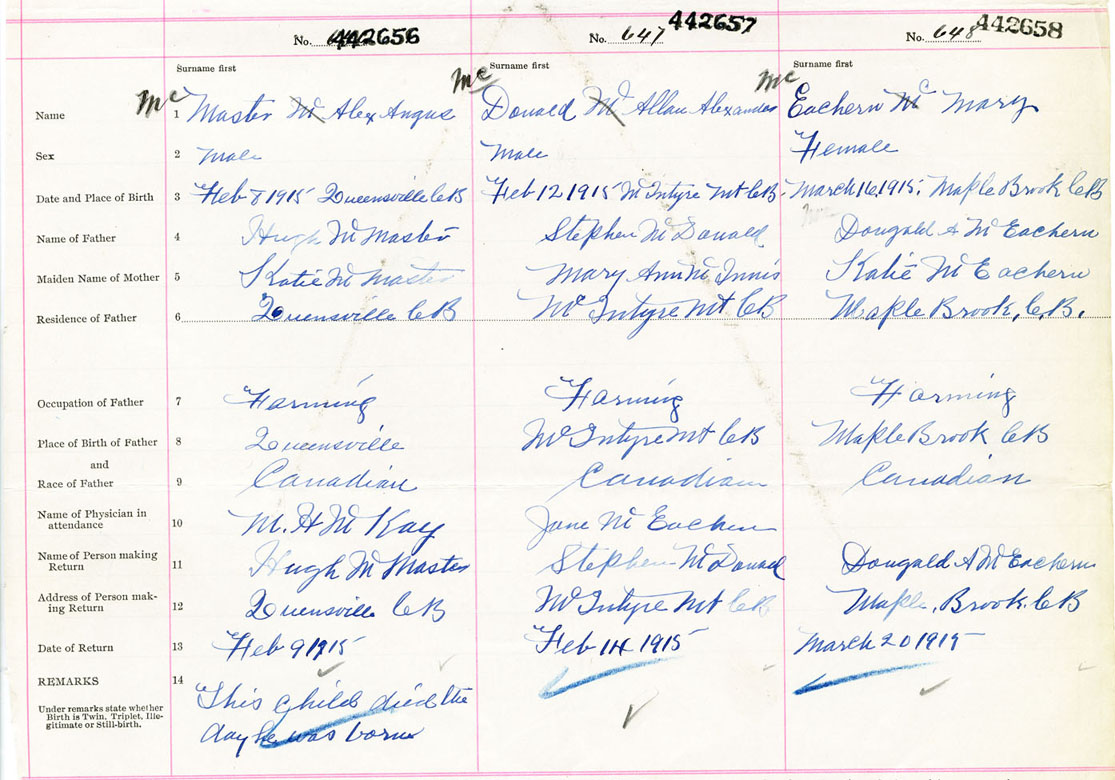 No. 442656 No. 647 442657 No. 648 442658
Surname first Surname first Surname first
Name 1 Mc Master Mc Alex Angus Mc Donald Mc Allan Alexander Mc Eachern Mc Mary
Sex 2 Male Male Female
Date and Place of Birth 3 Feb 8 1915 Queensville C B Feb 12 1915 Mc Intyre Mt C B. March 16, 1915. Maple Brook C B
Name of Father 4 Hugh Mc Master Stephen Mc Donald Dougald A Mc Eachern
Maiden Name of Mother 5 Katie Mc Master Mary Ann Mc Innis Katie Mc Eachern
Residence of Father 6 Queensville C B Mc Intyre Mt C B Maple Brook, C, B.
Occupation of Father 7 Farming Farming Farming
Place of Birth of Father 8 Queensville Mc Intyre Mt C B Maple Brook C B
and
Race of Father 9 Canadian Canadian Canadian
Name of Physician in
attendance 10 M. H Mc Kay Jane Mc Eachern
Name of Person making
Return 11 Hugh Mc Master Stephen Mc Donald Dougald A Mc Eachern
Address of Person mak-
ing Return 12 Queensville C B Mc Intyre Mt C B Maple, Brook. C B
Date of Return 13 Feb 9 1915 Feb 14 1915 March 20 1915
REMARKS 14
This child died the
Under remarks state whether
Birth is Twin, Triplet, Ille-
gitimate or Still-birth.
day he was born